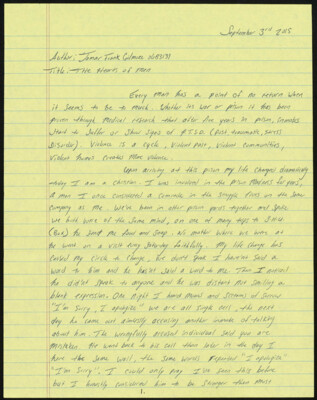 September 3rd 2015
Author: Jamar Trark Gilmore
Title: The Hearts of Man
Every man has a point of no return when
it seems to be to much. Whether its war or prison it has been
proven through Medical research that after five years in prison, inmates
start to suffer or show signs of P.T.S.D. (Post traumatic stress
Disorder). Violence is a cycle, violent past, violent communities,
violent homes creates more violence.
Upon arriving at this prison my life changed dramatically
today I am a christian. I was involved in the prison madness for years,
A man I once considered a comrade in the struggle lives in the same
company as me. We've been in other prison yards together and spoke
we both were of the same mind, on one of many trips to S.H.U.
(Box) he sent me food and soap. No matter where we were at
he went on a visit every Saturday faithfully. My life change has
caused my circle to change, but don't speak I haven't said a
word to him and he hasn't said a word to me. Then I noticed
he didn't speak to anyone and he was distant not smiling a
blank expression. One night I heard moans and screams of sorrow
"I'm Sorry, I apologize" we are all single cell, the next
day he came out silently accusing another inmate of talking
about him The wrongfully accused individual said you are
mistaken. He went back to his cell then later in the day I
hear the same wail, the same words repeated "I apologize"
"I'm Sorry". I could only pray I've seen this before
but I honestly considered him to be stronger than most
1.